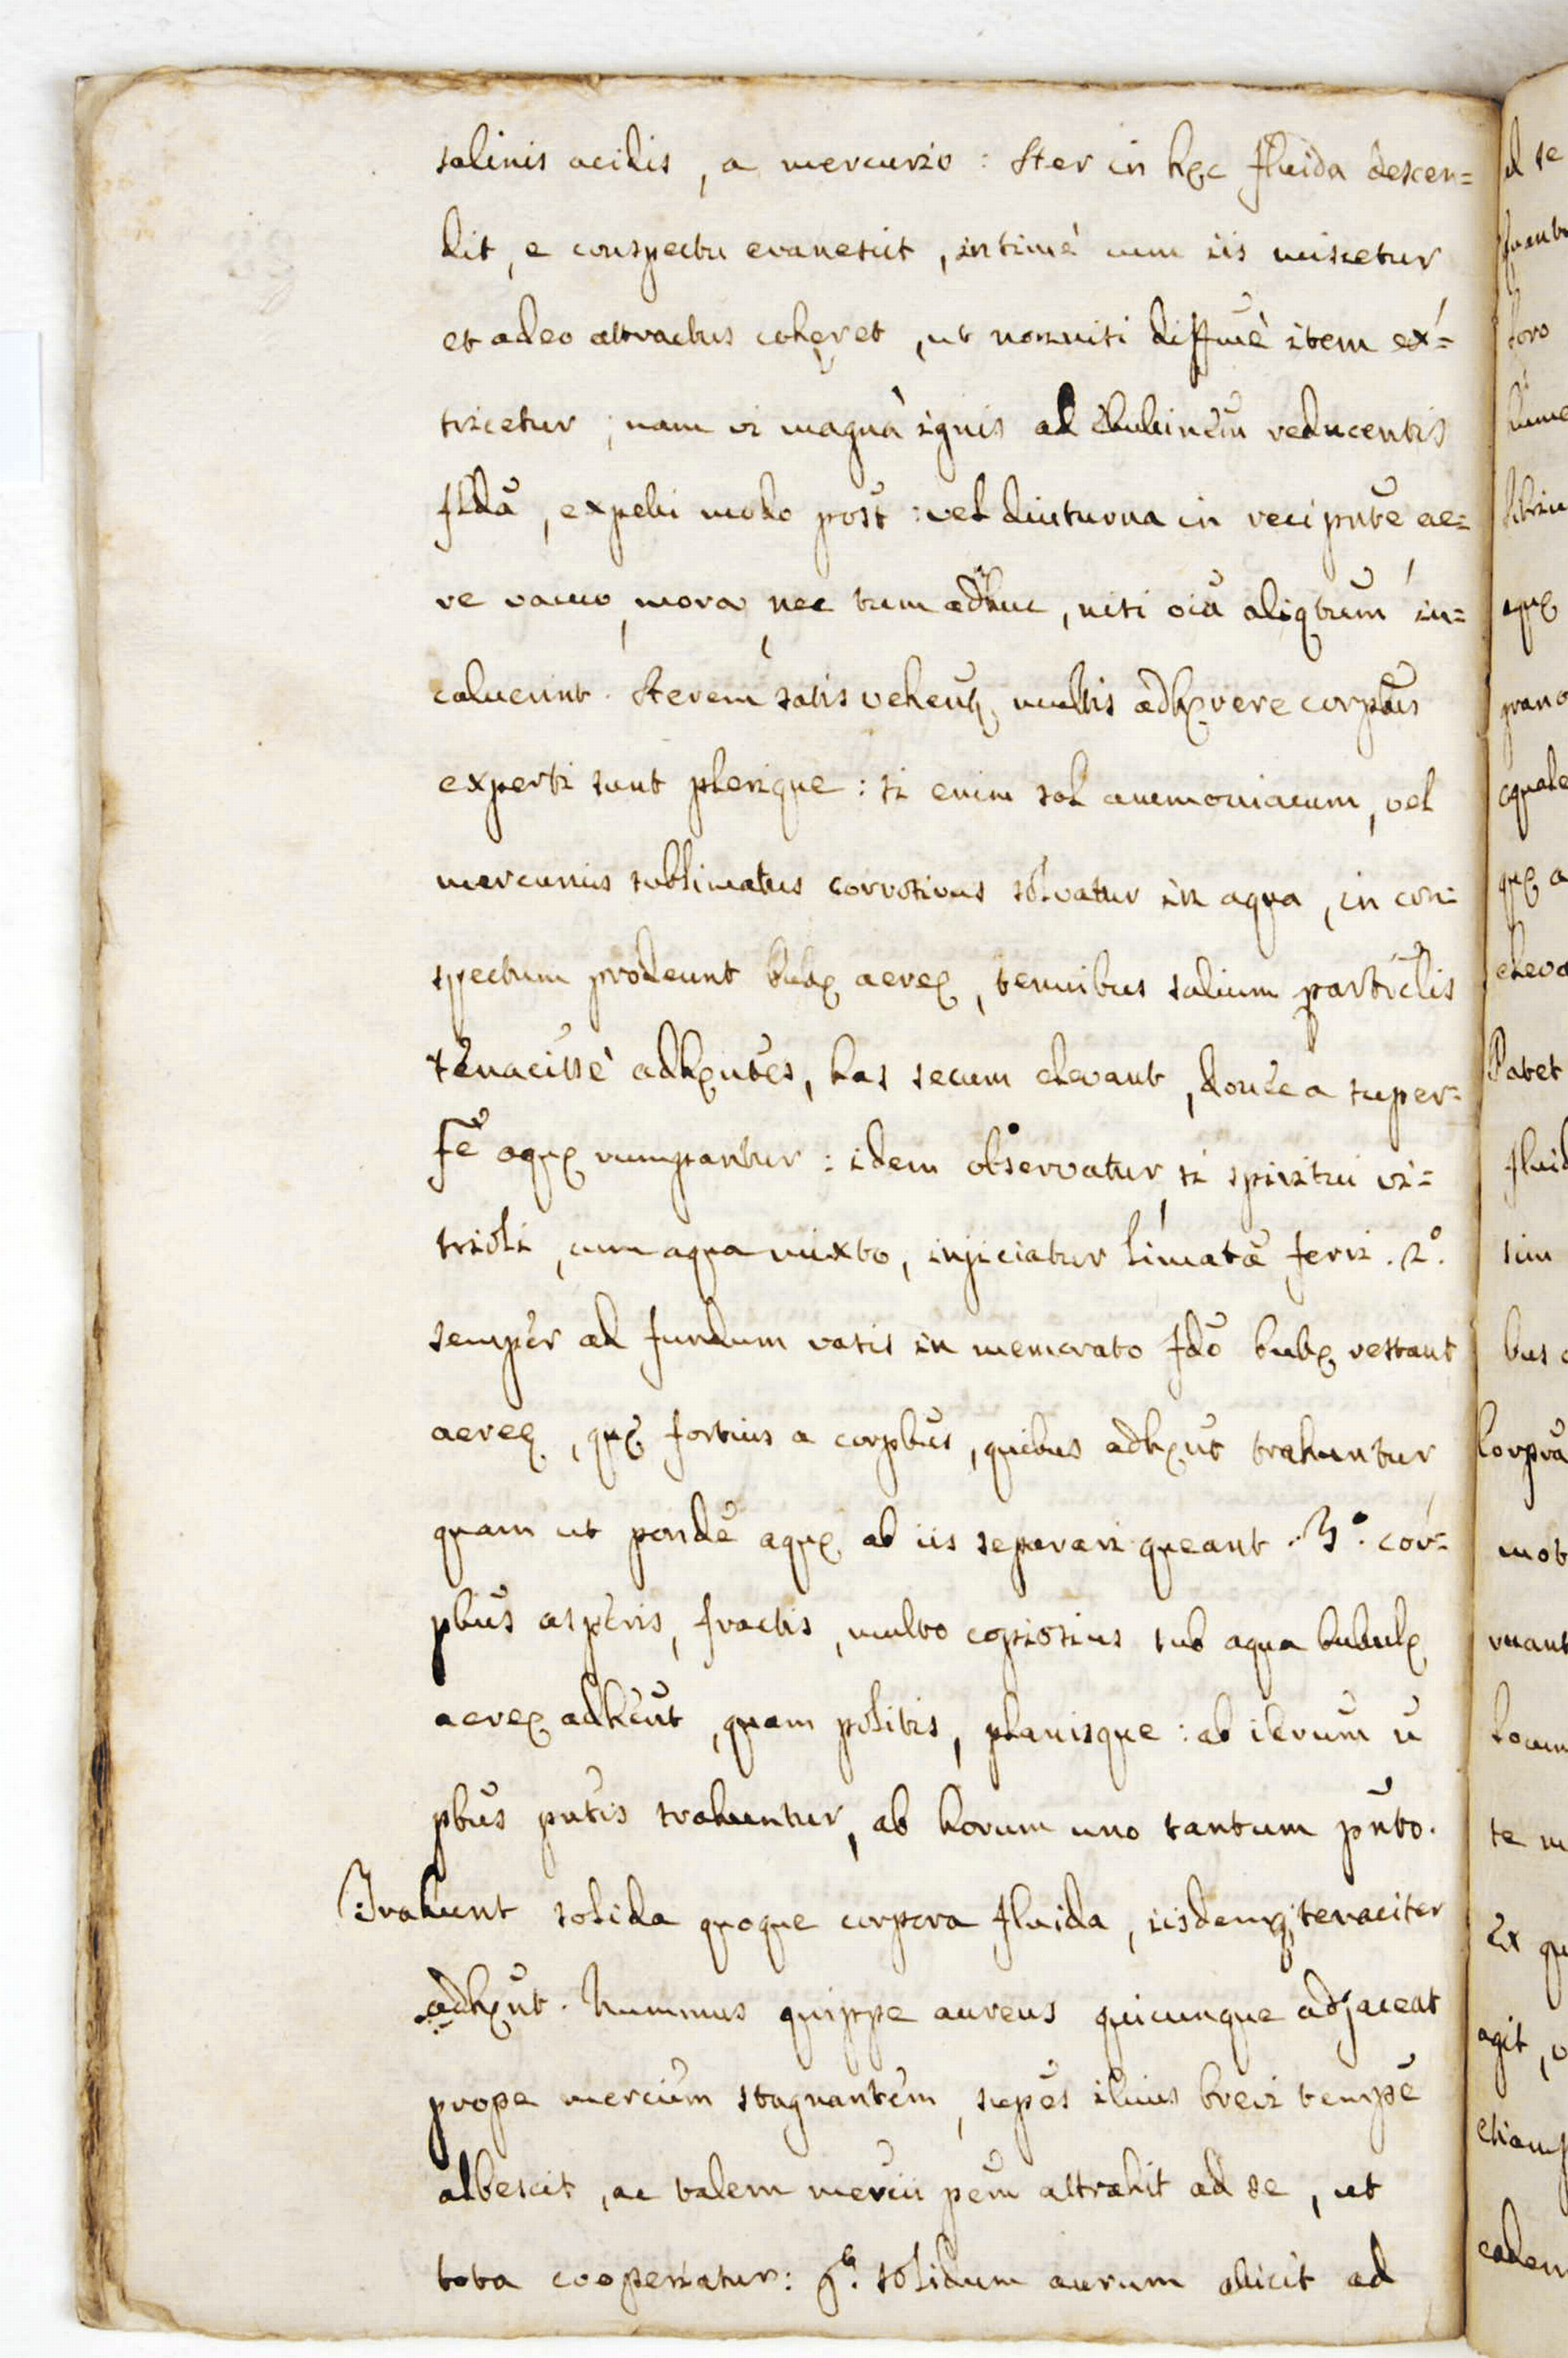 salinis acidis, a mercurio: Aer in hęc fluida descen=
dit, e conspectu evanescit, intimè cum iis miscetur
et adeo attractus cohęret, ut nonnisi diffiũè item ex=
tricetur; nam vi magnà ignis ad reducentis
flda, expelli modo post: vel diuturna in recipnte ae=
re vacuo, mora, nec tum adhuc, nisi oia aliqtum in=
caluerint. Aerem satis vehentr multis adhęrere corpbus
experti sunt plerique: si enim sal ammoniacum, vel
mercurius sublimatus corrosivus solvatur in aqua, in con=
spectum prodeunt bullę aereę, tenuibus salium particlis
tenacissè adhęntes, has secum elevant, donec a super=
fe aquę rumpantur: idem observatur, si spiritui vi=
trioli, cum aqua mixto, injiciatur limata ferri. 2º.
semper ad fundum vasis in memorato fdo bullę restant
aereę, quę fortius a corpbus, quibus adhęnt trahuntur
quam ut ponde aquę ab iis separari queant. 3º. cor=
pbus asperis, fractis, multo copiosius sub aqua bubulę
aereę adhęnt, quam politis, planisque: ab illorum
pbus pntis trahuntur, ab horum uno tantum pnto.
Trahunt solida quoque corpora fluida, iisdemq; tenaciter
adhęnt. Nummus quippe aureus quicunque adjaceat
prope mercium stagnantem, supes illius brevi tempe
albescit, ac talem mercii pem attrahit ad se, ut
tota cooperiatur: solidum aurum allicit ad